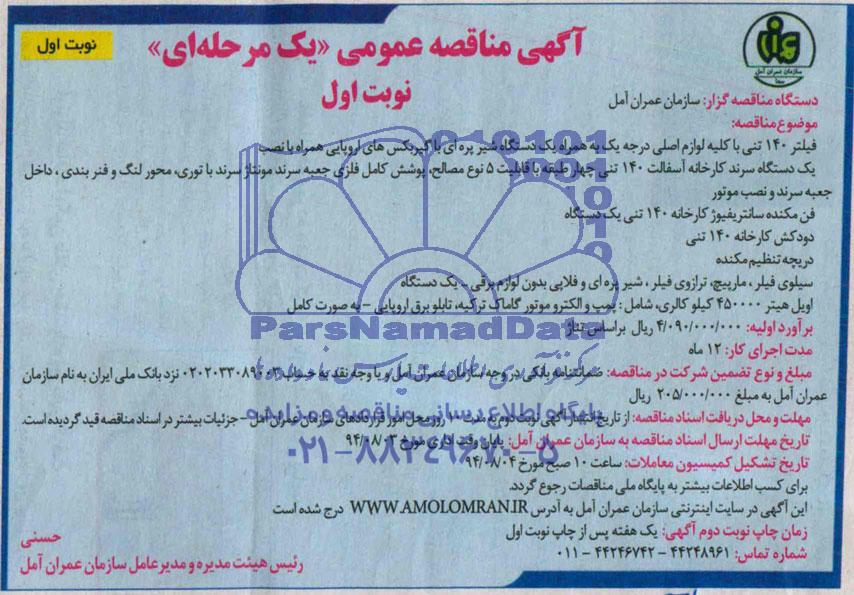 آگهی مناقصه عمومی «یک مرحله‌ای»
نوبت اول
نوبت اول
سازمان عمران آمل
دستگاه مناقصه گزار: سازمان عمران آمل
موضوع مناقصه:
فیلتر ۱۴۰ تنی با کلیه لوازم اصلی درجه یک به همراه یک دستگاه شیر پره ای با گیربکس های اروپایی همراه با نصب
یک دستگاه سرند کارخانه آسفالت ۱۴۰ تنی چهار طبقه با قابلیت ۵ نوع مصالح، پوشش کامل فلزی جعبه سرند مونتاژ سرند با توری، محور لنگ و فنر بندی ، داخل
جعبه سرند و نصب موتور
فن مکنده سانتریفیوژ کارخانه ۱۴۰ تنی یک دستگاه
دودکش کارخانه ۱۴۰ تنی
دریچه تنظیم مکنده
سیلوی فیلر ، مارپیچ، ترازوی فیلر ، شیر پره ای و فلاپی بدون لوازم برقی – یک دستگاه
اویل هیتر ۴۵۰۰۰۰ کیلو کالری، شامل : پمپ و الکترو موتور گاماک ترکیه، تابلو برق اروپایی – به صورت کامل
برآورد اولیه: ۴/۰۹۰/۰۰۰/۰۰۰ ریال براساس تناژ
مدت اجرای کار: ۱۲ ماه
مبلغ و نوع تضمین شرکت در مناقصه: ضمانتنامه بانکی در وجه سازمان عمران آمل و یا وجه نقد به حساب ۰۲۰۲۰۳۳۰۸۹۰۰۳ نزد بانک ملی ایران به نام سازمان
عمران آمل به مبلغ ۲۰۵/۰۰۰/۰۰۰ ریال
مهلت و محل دریافت اسناد مناقصه: از تاریخ انتشار آگهی نوبت دوم به مدت ۱۰ روز محل امور قراردادهای سازمان عمران آمل – جزئیات بیشتر در اسناد مناقصه قید گردیده است.
تاریخ مهلت ارسال اسناد مناقصه به سازمان عمران آمل: پایان وقت اداری مورخ ۹۴/۰۸/۰۳
تاریخ تشکیل کمیسیون معاملات: ساعت ۱۰ صبح مورخ ۹۴/۰۸/۰۴
برای کسب اطلاعات بیشتر به پایگاه ملی مناقصات رجوع گردد.
این آگهی در سایت اینترنتی سازمان عمران آمل به آدرس WWW.AMOLOMRAN.IR درج شده است
زمان چاپ نوبت دوم آگهی: یک هفته پس از چاپ نوبت اول
شماره تماس: ۴۴۲۴۸۹۶۱ – ۴۴۲۴۶۷۴۲ – ۰۱۱
حسنی
رئیس هیئت مدیره و مدیرعامل سازمان عمران آمل
ParsNamadData
پایگاه اطلاع رسانی مناقصه و مزایده
۰۲۱-۸۸۲۴۹۶۷۰-۵